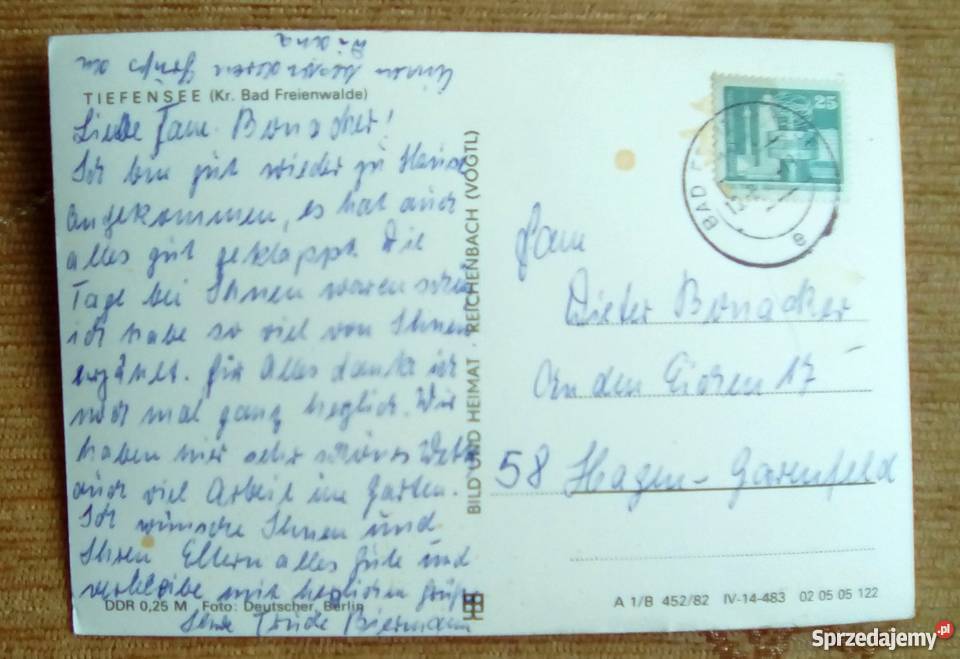 TIEFENSEE (Kr. Bad Freienwalde)
Liebe Frau Bonacker!
Ich bin gut wieder zu Hause
angekommen, es hat auch
alles gut geklappt. Die
Tage bei Ihnen waren schön
ich habe so viel von Ihnen
erzählt. für Alles danke ich
noch mal ganz herzlich. Wir
haben hier sehr schönes Wett
auch viel Arbeit im Garten.
Ich wünsche Ihnen und
Ihren Eltern alles gute und
verbleibe mit herzlichen grüß
Trude Biermann
einen Gruß an
Diana
DDR 0,25 M Foto: Deutscher, Berlin
BILD UND HEIMAT · REICHENBACH (VOGTL)
25
BAD
e
Frau
Dieter Bonacker
An den Eichen 17
58 Hagen-Garenfeld
A 1/B 452/82 IV-14-483 02 05 05 122
Sprzedajemy.pl